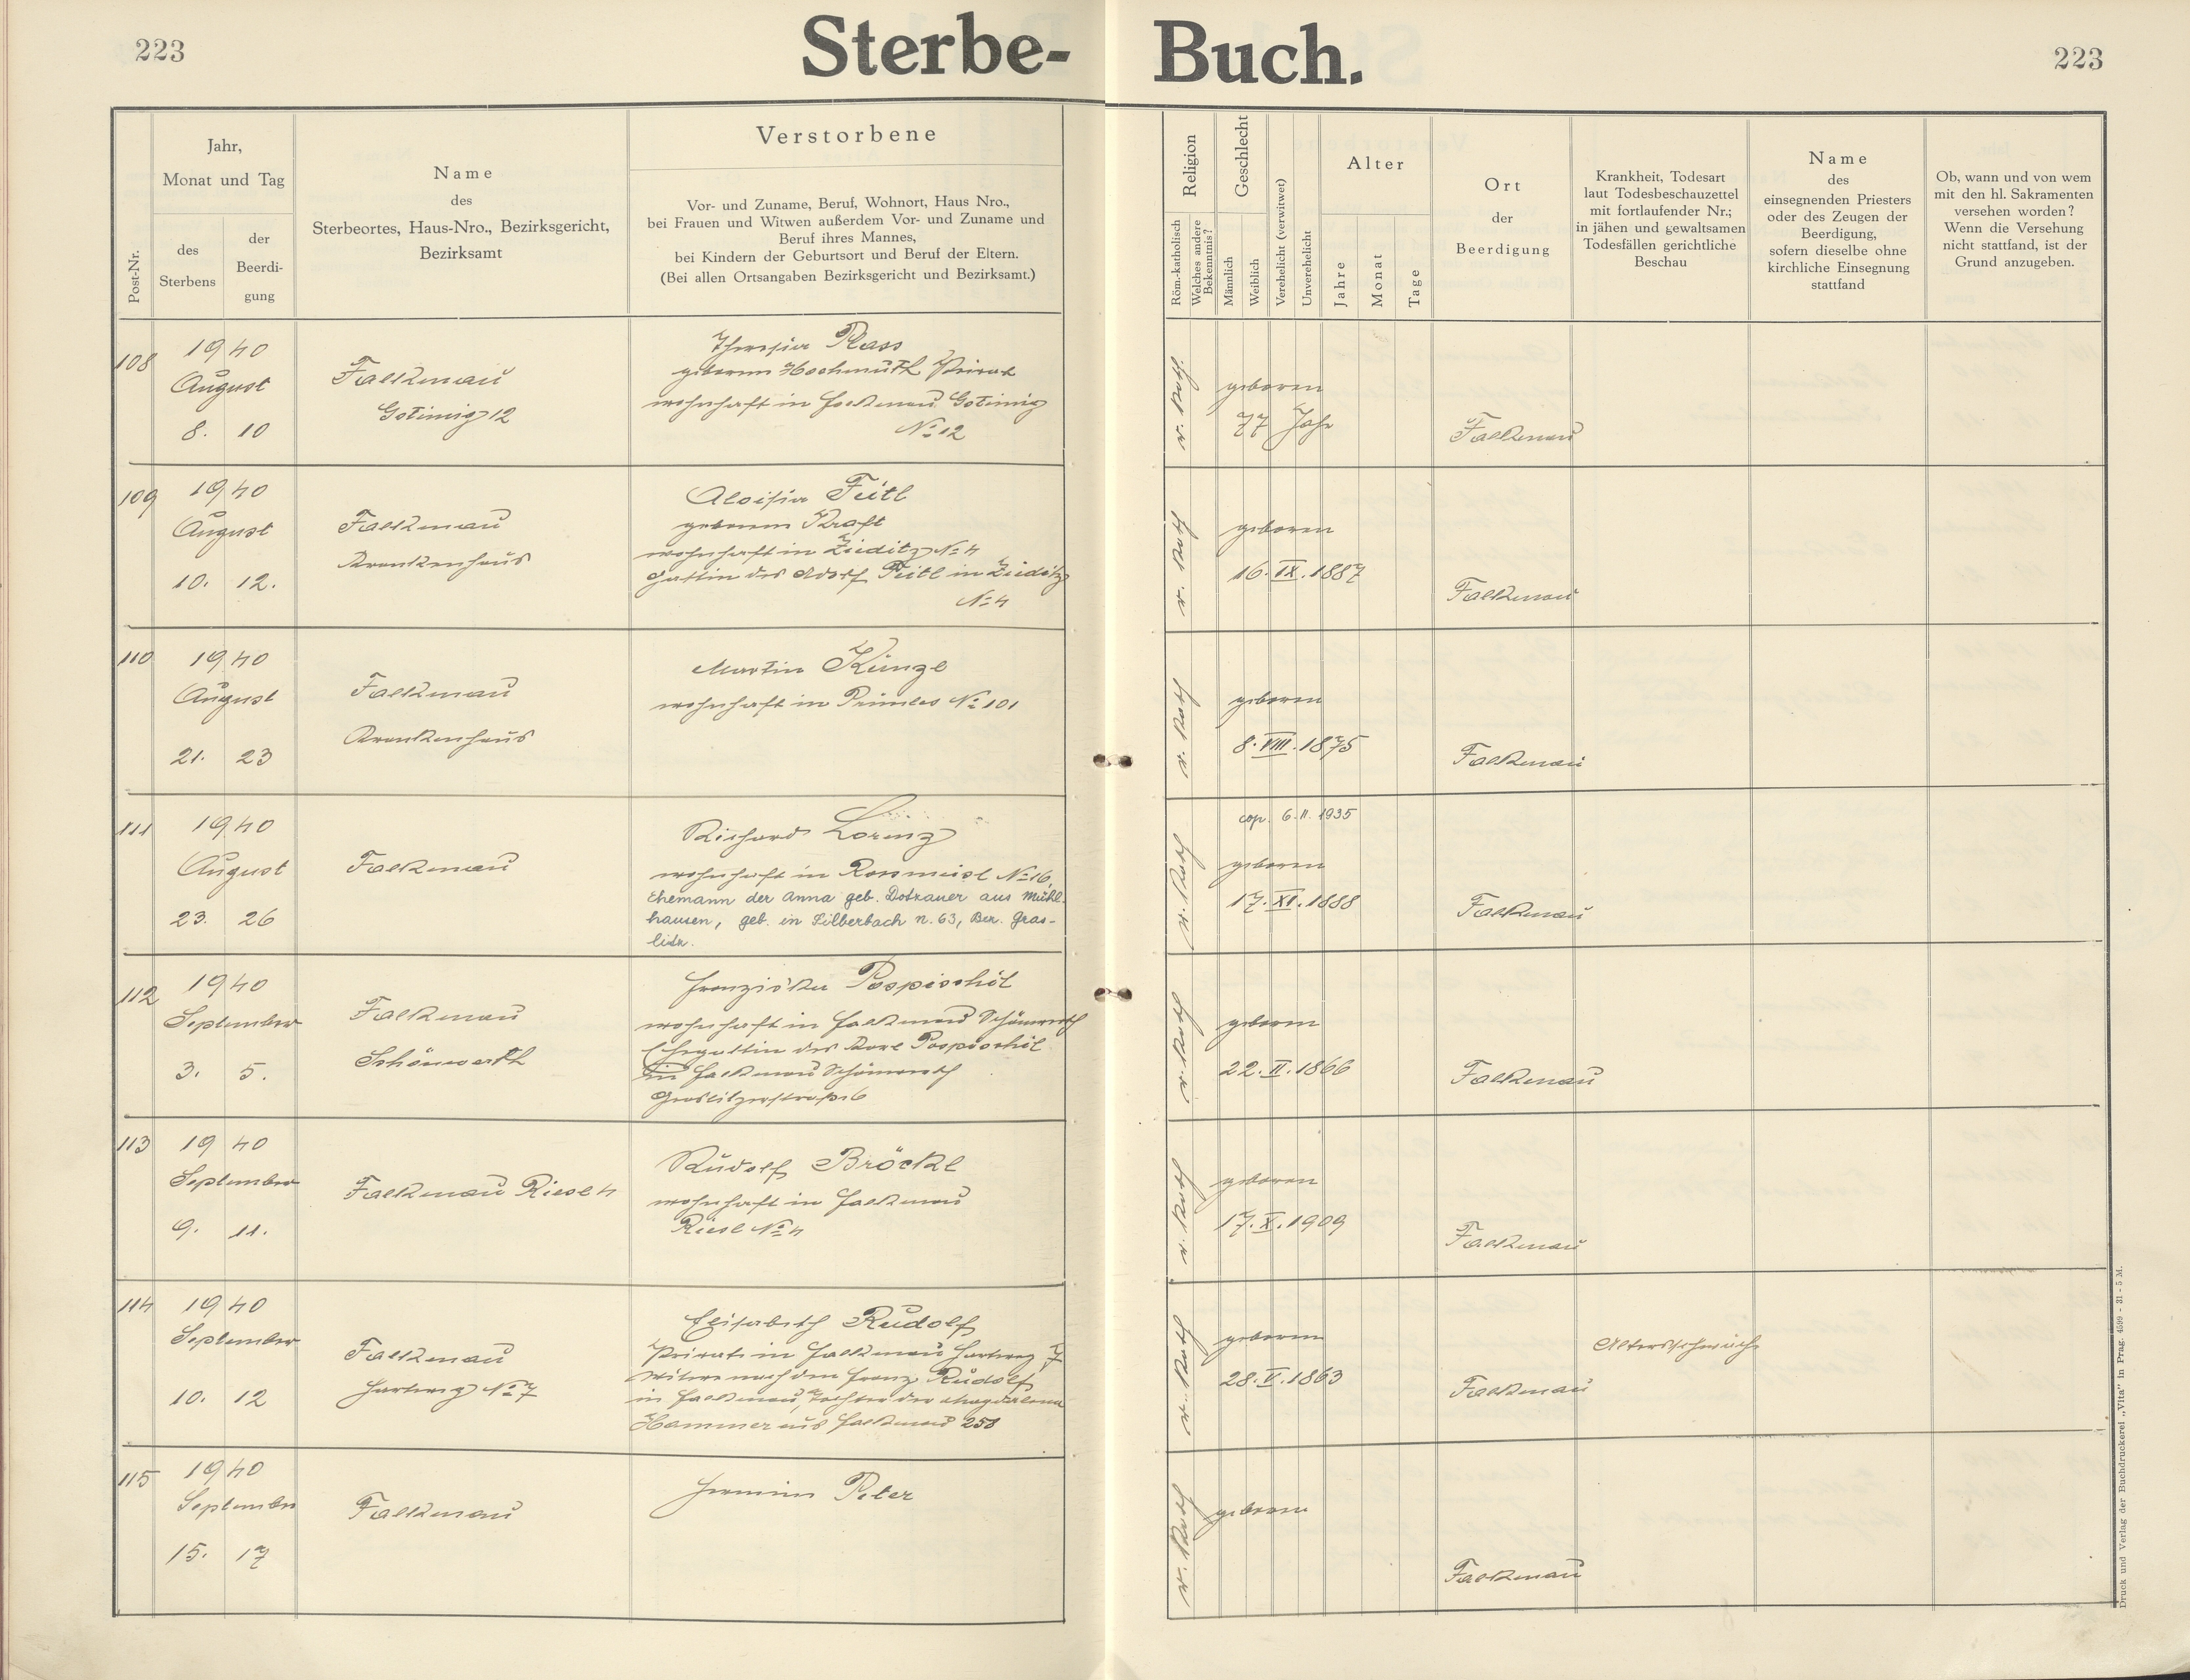 223
Sterbe-Buch.
223
Post-Nr.
Jahr,
Monat und Tag
des
Sterbens
der
Beerdi-
gung
Name
des
Sterbeortes, Haus-Nro., Bezirksgericht,
Bezirksamt
Verstorbene
Vor- und Zuname, Beruf, Wohnort, Haus Nro.,
bei Frauen und Witwen außerdem Vor- und Zuname und
Beruf ihres Mannes,
bei Kindern der Geburtsort und Beruf der Eltern.
(Bei allen Ortsangaben Bezirksgericht und Bezirksamt.)
Religion
Röm.-katholisch
Welches andere
Bekenntnis?
Geschlecht
Männlich
Weiblich
Verehelicht (verwitwet)
Unverehelicht
Alter
Jahre
Monat
Tage
Ort
der
Beerdigung
Krankheit, Todesart
laut Todesbeschauzettel
mit fortlaufender Nr.;
in jähen und gewaltsamen
Todesfällen gerichtliche
Beschau
Name
des
einsegnenden Priesters
oder des Zeugen der
Beerdigung,
sofern dieselbe ohne
kirchliche Einsegnung
stattfand
Ob, wann und von wem
mit den hl. Sakramenten
versehen worden?
Wenn die Versehung
nicht stattfand, ist der
Grund anzugeben.
108
1940
August
8. 10
Falkenau
Gstinnig 12
Theresia Plass
geborene Hochmuth Private
wohnhaft in Falkenau
No 12
r. kath
geboren
77 Jahr
Falkenau
109
1940
August
10. 12.
Falkenau
Krankenhaus
Aloisia Feitl
geborene Kraft
wohnhaft in Zieditz No 4
Gattin des Adolf Feitl in Zieditz
No 4
r. kath
geboren
16. IX. 1887
Falkenau
110
1940
August
21. 23
Falkenau
Krankenhaus
Martin Künzl
wohnhaft in Prünles No 101
r. kath
geboren
8. VIII. 1875
Falkenau
111
1940
August
23. 26
Falkenau
Richard Lorenz
wohnhaft in Rossmeisl No 16,
Ehemann der Anna geb. Dotzauer aus Mühl-
hausen, geb. in Silberbach n. 63, Bez. Gras-
litz.
r. kath
cop. 6. II. 1935
geboren
17. XI. 1888
Falkenau
112
1940
September
3. 5.
Falkenau
Schönwerth
Franziska Pospischil
wohnhaft in Falkenau Schönwerth
Ehegattin des Karl Pospischil
in Falkenau Schönwerth
Graslitzerstraße 6
r. kath
geboren
22. II. 1866
Falkenau
113
1940
September
9. 11.
Falkenau Riesl 4
Rudolf Bröckl
wohnhaft in Falkenau
Riesl No 4
r. kath
geboren
17. X. 1909
Falkenau
114
1940
September
10. 12
Falkenau
Hartweg No 7
Elisabeth Rudolf
Private in Falkenau Hartweg 7
Witwe nach dem Franz Rudolf
in Falkenau, Tochter der Magdalena
Hammer aus Falkenau 258
r. kath
geboren
28. V. 1863
Falkenau
Altersschwäche
115
1940
September
15. 17
Falkenau
Hermine Peter
r. kath
geboren
Falkenau
Druck und Verlag der Buchdruckerei „Vita" in Prag. 4599 - 31 - 5 M.